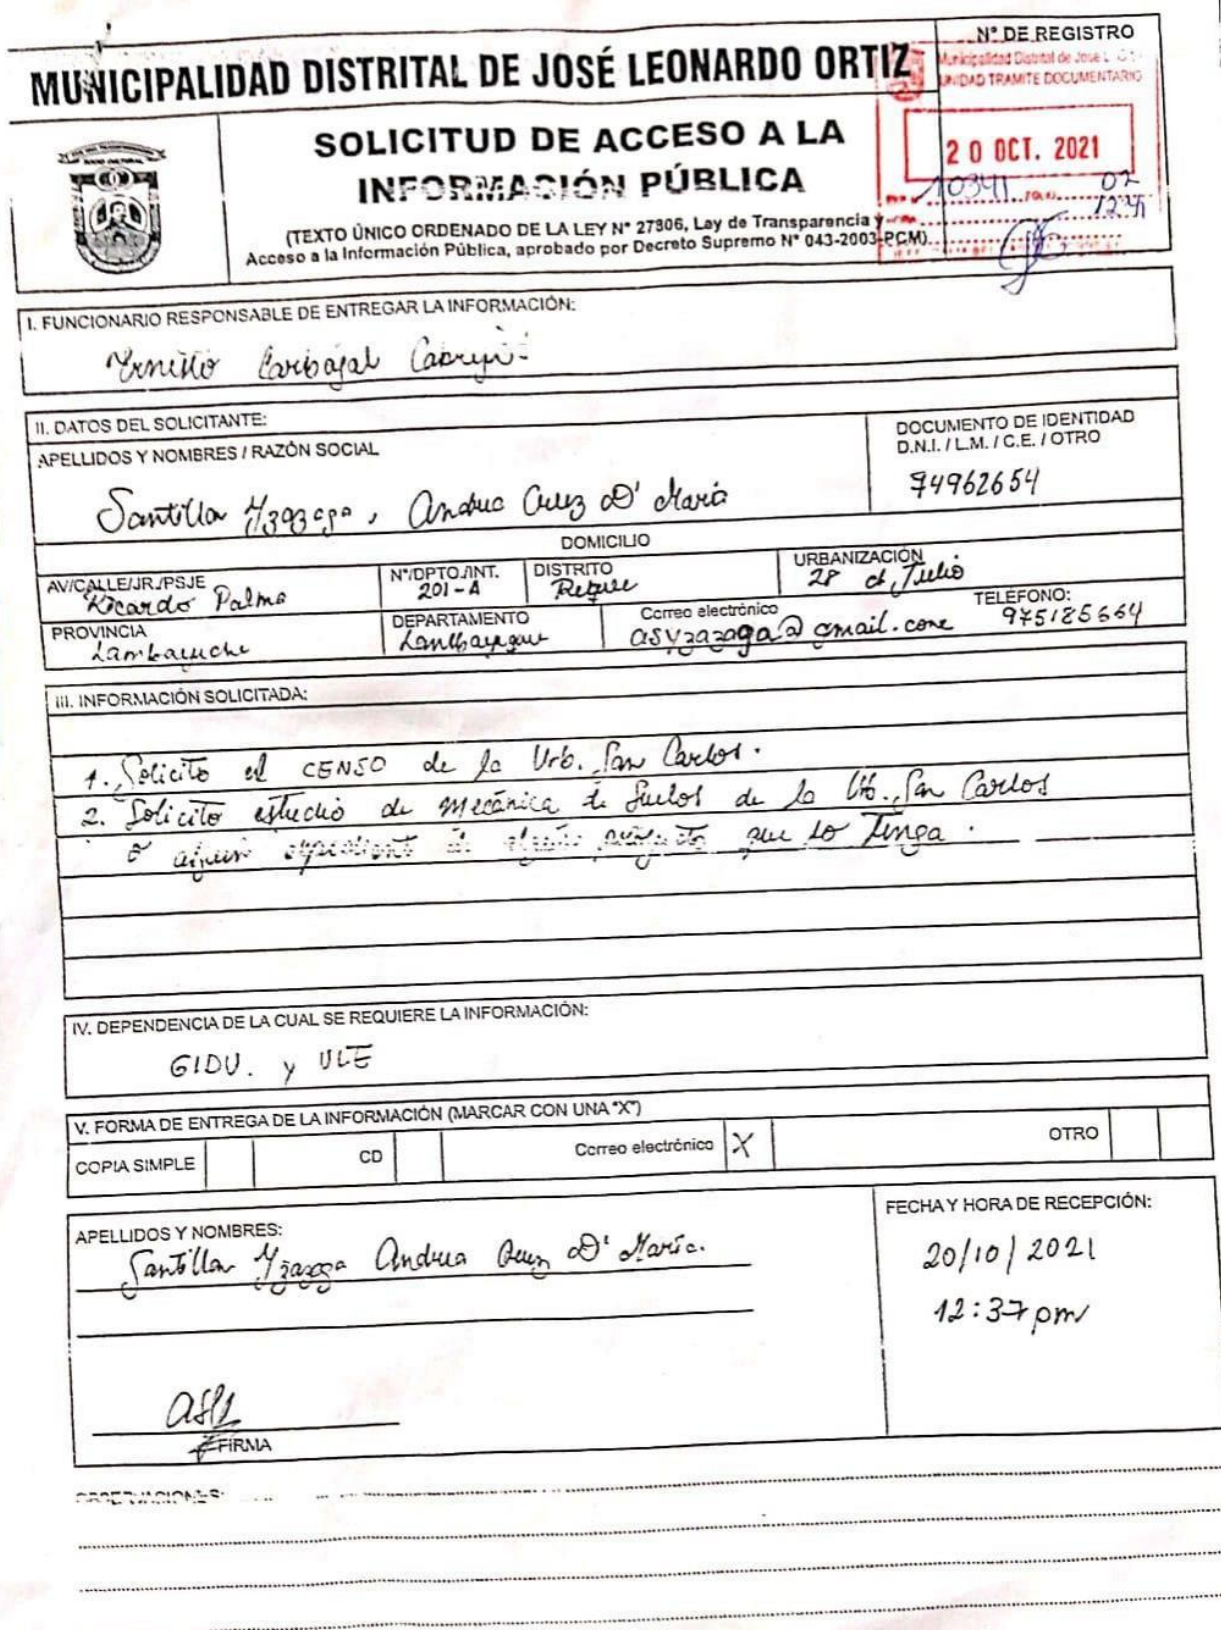 N° DE REGISTRO
MUNICIPALIDAD DISTRITAL DE JOSÉ LEONARDO ORTIZ
Municipalidad Distital de José L.
UNIDAD TRAMITE DOCUMENTARIO
SOLICITUD DE ACCESO A LA
INFORMACIÓN PÚBLICA
20 OCT. 2021
10341 02
12:41
(TEXTO ÚNICO ORDENADO DE LA LEY N° 27806, Ley de Transparencia y
Acceso a la Información Pública, aprobado por Decreto Supremo N° 043-2003-PCM).
I. FUNCIONARIO RESPONSABLE DE ENTREGAR LA INFORMACIÓN:
Carbajal
II. DATOS DEL SOLICITANTE:
APELLIDOS Y NOMBRES / RAZÓN SOCIAL
DOCUMENTO DE IDENTIDAD
D.N.I. / L.M. / C.E. / OTRO
Santillan Yzazaga, Andrea Cruz D' María
74962654
DOMICILIO
AV/CALLE/JR./PSJE
Ricardo Palma
N°/DPTO./INT.
201-A
DISTRITO
Reque
URBANIZACIÓN
28 de Julio
PROVINCIA
DEPARTAMENTO
Lambayeque
Correo electrónico
asyzazaga@gmail.com
TELÉFONO:
975185664
III. INFORMACIÓN SOLICITADA:
1. Solicito el CENSO de la Urb. San Carlos.
2. Solicito estudio de mecánica de Suelos de la Urb. San Carlos
o algún expediente de algún proyecto que lo tenga.
IV. DEPENDENCIA DE LA CUAL SE REQUIERE LA INFORMACIÓN:
GIDU. y ULE
V. FORMA DE ENTREGA DE LA INFORMACIÓN (MARCAR CON UNA "X")
COPIA SIMPLE CD Correo electrónico X OTRO
APELLIDOS Y NOMBRES:
Santillan Yzazaga Andrea Cruz D' María.
FECHA Y HORA DE RECEPCIÓN:
20/10/2021
12:37 pm
FIRMA
OBSERVACIONES: